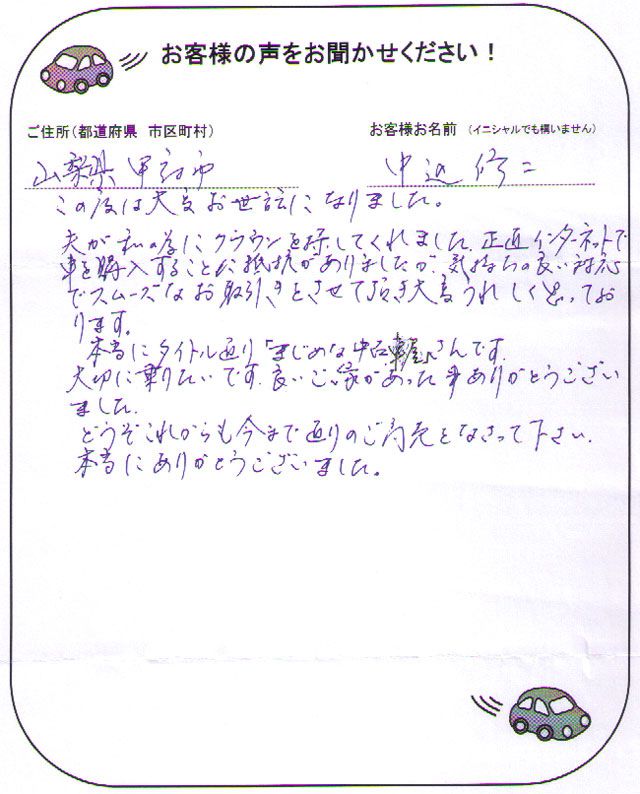 お客様の声をお聞かせください！
ご住所（都道府県 市区町村） お客様お名前 （イニシャルでも構いません）
山梨県 甲府市 中込 修二
この度は大変お世話になりました。
夫が私の為にクラウンを探してくれました。正直インターネットで
車を購入することに抵抗がありましたが、気持ちの良い対応
でスムーズなお取引きをさせて頂き大変うれしく思ってお
ります。
本当にタイトル通り「まじめな中古車屋」さんです。
大切に乗りたいです。良いご縁があった事ありがとうござい
ました。
どうぞこれからも今まで通りのご商売をなさって下さい。
本当にありがとうございました。